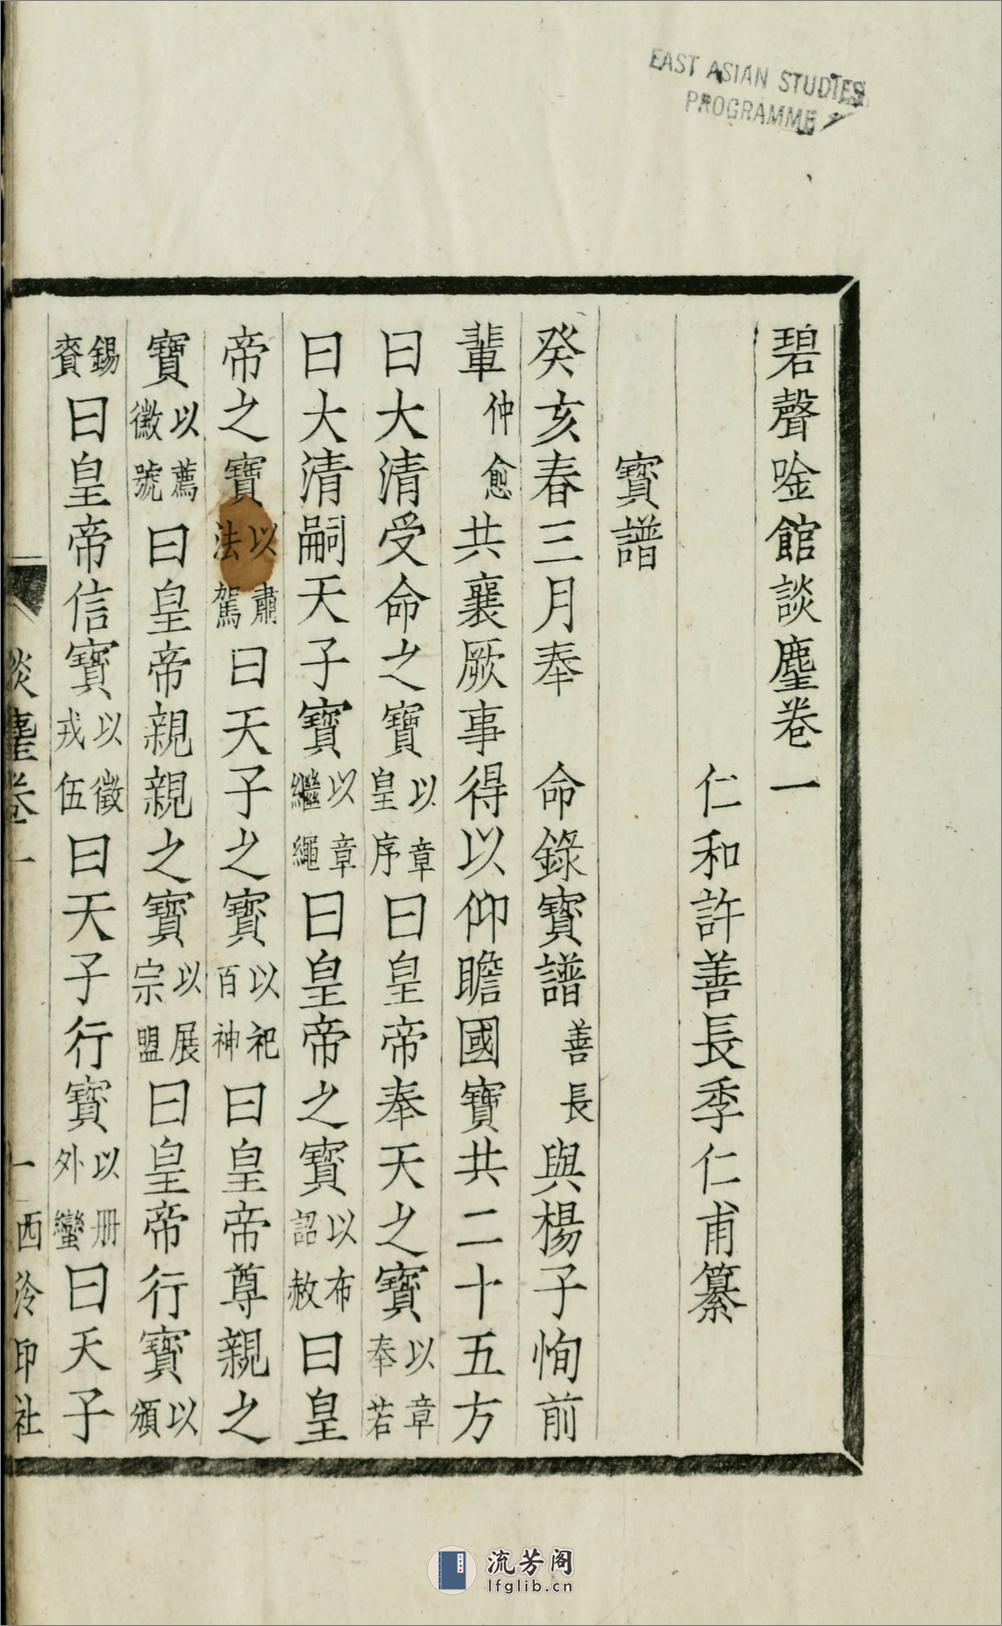 EAST ASIAN STUDIES
PROGRAMME
碧聲唫館談麈卷一
仁和許善長季仁甫纂
寳譜
癸亥春三月奉 命錄寳譜善長與楊子恂前
輩仲愈共襄厥事得以仰瞻國寳共二十五方
曰大清受命之寳以章皇序曰皇帝奉天之寳以章奉若
曰大清嗣天子寳以章繼繩曰皇帝之寳以布詔赦曰皇
帝之寳以肅法駕曰天子之寳以祀百神曰皇帝尊親之
寳以薦徽號曰皇帝親親之寳以展宗盟曰皇帝行寳以頒
錫賚曰皇帝信寳以徵戎伍曰天子行寳以册外蠻曰天子
談麈卷一
一
西泠印社
流芳阁
lfglib.cn